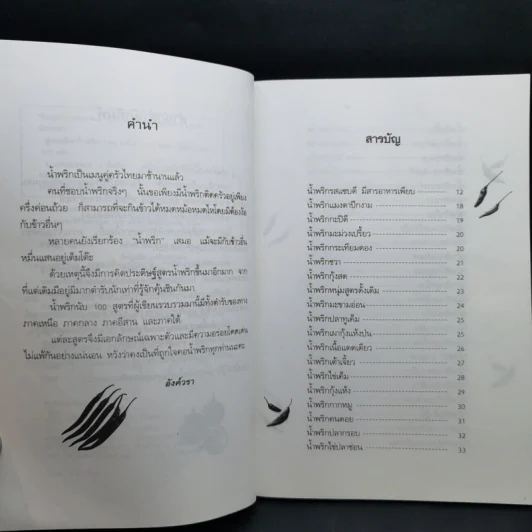 คำนำ
น้ำพริกเป็นเมนูคู่ครัวไทยมาช้านานแล้ว
คนที่ชอบน้ำพริกจริงๆ นั้นขอเพียงมีน้ำพริกติดครัวอยู่เพียง
ครึ่งค่อนถ้วย ก็สามารถที่จะกินข้าวได้หมดหม้อหมดไหโดยมิต้องง้อ
กับข้าวอื่นๆ
หลายคนยังเรียกร้อง "น้ำพริก" เสมอ แม้จะมีกับข้าวอื่น
หมื่นแสนอยู่เต็มโต๊ะ
ด้วยเหตุนี้จึงมีการคิดประดิษฐ์สูตรน้ำพริกขึ้นมาอีกมาก จาก
ที่แต่เดิมมีอยู่มีมากตำรับนักเท่าที่รู้จักคุ้นชินกันมา
น้ำพริกนับ 100 สูตรที่ผู้เขียนรวบรวมมานี้มีทั้งตำรับของทาง
ภาคเหนือ ภาคกลาง ภาคอีสาน และภาคใต้
แต่ละสูตรจึงมีเอกลักษณ์เฉพาะตัวและมีความอร่อยโดดเด่น
ไม่แพ้กันอย่างแน่นอน หวังว่าคงเป็นที่ถูกใจคอน้ำพริกทุกท่านนะคะ
อังค์วรา
สารบัญ
น้ำพริกรสแซบดี มีสารอาหารเพียบ 12
น้ำพริกแมงดาปีกงาม 18
น้ำพริกกะปิดี 19
น้ำพริกมะม่วงเปรี้ยว 20
น้ำพริกกระเทียมดอง 20
น้ำพริกชวา 21
น้ำพริกกุ้งสด 22
น้ำพริกหนุ่มสูตรดั้งเดิม 23
น้ำพริกมะขามอ่อน 24
น้ำพริกปลาทูเค็ม 24
น้ำพริกเผากุ้งแห้งป่น 25
น้ำพริกเนื้อแดดเดียว 26
น้ำพริกเต้าเจี้ยว 27
น้ำพริกไข่เค็ม 28
น้ำพริกกุ้งแห้ง 29
น้ำพริกกากหมู 30
น้ำพริกคนดอย 31
น้ำพริกปลากรอบ 32
น้ำพริกไข่ปลาช่อน 33